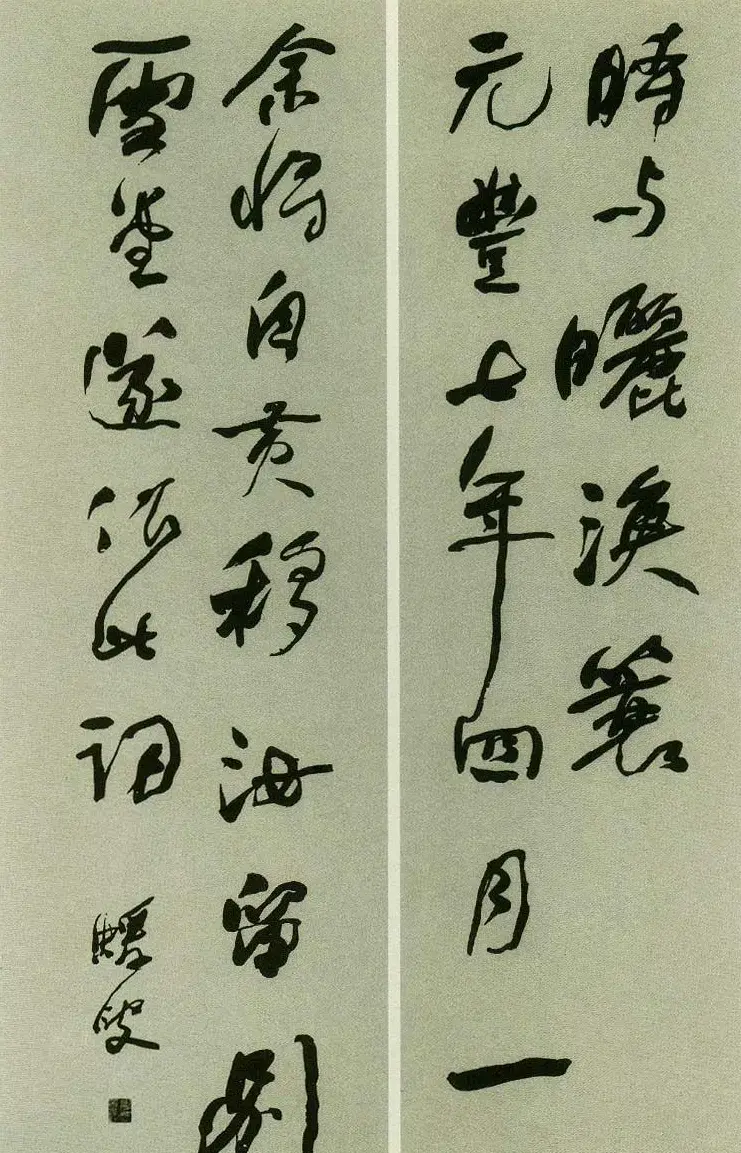 時与曬漁蓑
元豐七年四月一
余將自黃移汝留別
雪堂遂作此詞
蝯叟